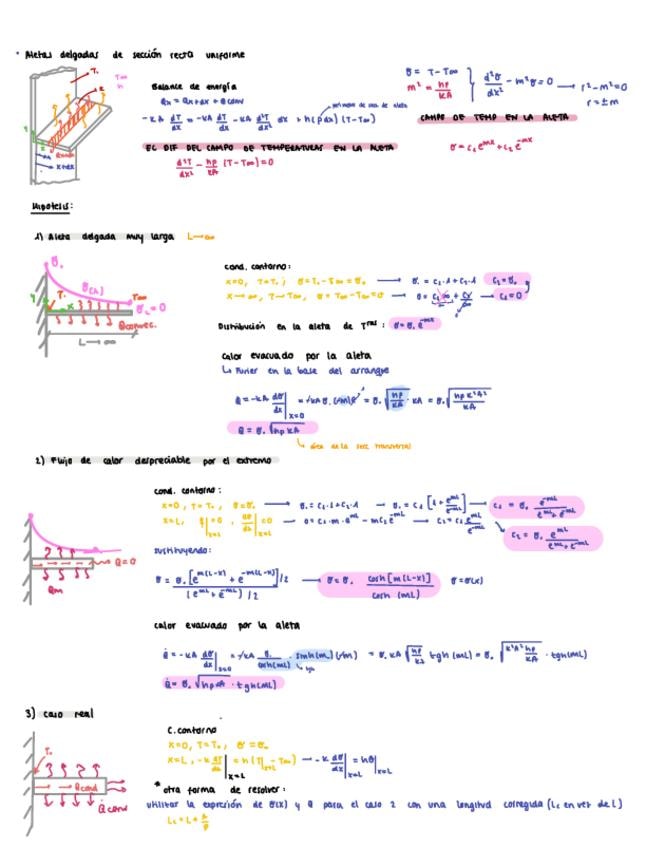 * Aletas delgadas de sección recta uniforme
T∞
h
Balance de energía
Qx = Qx+dx + Qconv
-KA dT/dx = -KA dT/dx - KA d²T/dx² dx + h(pdx)(T-T∞)
EC DIF DEL CAMPO DE TEMPERATURAS EN LA ALETA
d²T/dx² - hp/KA (T-T∞) = 0
θ = T-T∞
m² = hp/KA
d²θ/dx² - m²θ = 0 → r²-m²=0
r = ±m
CAMPO DE TEMP EN LA ALETA
θ = c₁e^mx + c₂e^-mx
Hipótesis:
1) Aleta delgada muy larga L→∞
θ₀
θ(x)
T₀
T∞
θL=0
Qconvec.
L→∞
cond. contorno:
x=0, T=T₀; θ=T₀-T∞=θ₀ → θ₀ = c₁·1+c₂·1 c₂=θ₀
x→∞, T→T∞, θ=T∞-T∞=0 → 0= c₁·∞ + c₂/∞ → c₁=0
Distribución en la aleta de Tras: θ=θ₀e^-mx
Calor evacuado por la aleta
↳ Furier en la base del arranque
Q = -KA dθ/dx |x=0 = -KAθ₀(-m) = θ₀ √(hp/KA) · KA = θ₀ √(hpK²A²/KA)
Q = θ₀ √(hpKA)
↳ área de la secc transversal
2) Flujo de calor despreciable por el extremo
Q=0
cond. contorno:
x=0, T=T₀, θ=θ₀ → θ₀=c₁·1+c₂·1 → θ₀=c₁[1+e^mL/e^-mL] → c₁ = θ₀ e^-mL/(e^mL+e^-mL)
x=L, q|x=L=0, dθ/dx|x=L=0 → 0=c₁·m·e^mL - mc₂e^-mL → c₂=c₁ e^mL/e^-mL
c₂ = θ₀ e^mL/(e^mL+e^-mL)
sustituyendo:
θ = θ₀ [e^m(L-x) + e^-m(L-x)]/2 / (e^mL+e^-mL)/2 → θ=θ₀ cosh[m(L-x)]/cosh(mL) θ=θ(x)
calor evacuado por la aleta
Q̇ = -KA dθ/dx |x=0 = -KA θ₀/cosh(mL) · senh(mL)(-m) = θ₀ KA √(hp/KA) tgh(mL) = θ₀ √(K²A²hp/KA) · tgh(mL)
Q̇ = θ₀ √(hpKA) · tgh(mL)
3) caso real
T₀
Q̇cond
Q̇conv
C. contorno
x=0, T=T₀, θ=θ₀
x=L, -K dT/dx |x=L = h(T|x=L - T∞) → -K dθ/dx |x=L = hθ|x=L
* otra forma de resolver:
utilizar la expreción de θ(x) y Q para el caso 2 con una longitud corregida (Lc en vez de L)
Lc = L + A/p